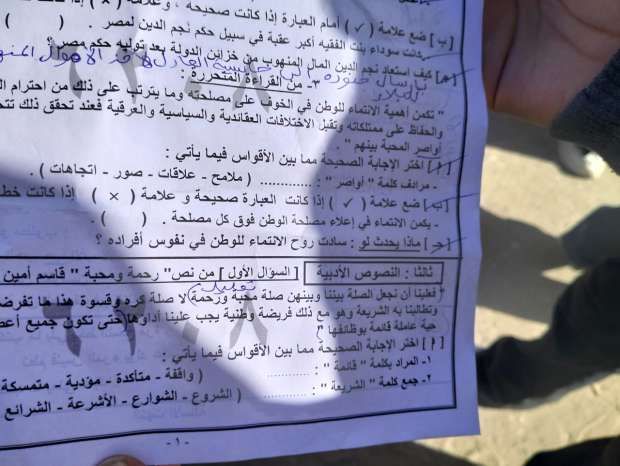 [ب] ضع علامة ( ✓ ) أمام العبارة إذا كانت صحيحة ، وعلامة ( × ) إذا كانت
- كانت سوداء بنت الفقيه أكبر عقبة في سبيل حكم نجم الدين لمصر . (
[ج] كيف استعاد نجم الدين المال المنهوب من خزائن الدولة بعد توليه حكم مصر ؟
٣- من القراءة المتحررة :
" تكمن أهمية الانتماء للوطن في الخوف على مصلحته وما يترتب على ذلك من احترام
والحفاظ على ممتلكاته وتقبل الاختلافات العقائدية والسياسية والعرقية فعند تحقق ذلك
أواصر المحبة بينهم " .
[أ] اختر الإجابة الصحيحة مما بين الأقواس فيما يأتي :
- مرادف كلمة " أواصر " : ............ ( ملامح - علاقات - صور - اتجاهات ) .
[ب] ضع علامة ( ✓ ) إذا كانت العبارة صحيحة و علامة ( × ) إذا كانت
- يكمن الانتماء في إعلاء مصلحة الوطن فوق كل مصلحة . ( ) .
[ج] ماذا يحدث لو : سادت روح الانتماء للوطن في نفوس أفراده ؟
ثالثا : النصوص الأدبية [ السؤال الأول ] من نص " رحمة ومحبة " قاسم أمين
" فعلينا أن نجعل الصلة بيننا وبينهن صلة محبة ورحمة لا صلة كره وقسوة هذا ما تفرضه
وتطالبنا به الشريعة وهو مع ذلك فريضة وطنية يجب علينا أداؤها حتى تكون جميع
حية عاملة قائمة بوظائفها "
[أ] اختر الإجابة الصحيحة مما بين الأقواس فيما يأتي :
١- المراد بكلمة " قائمة " : ............ ( واقفة - متأكدة - مؤدية - متمسكة
٢- جمع كلمة " الشريعة " : ............ ( الشروع - الشوارع - الأشرعة - الشرائع
- ١ -